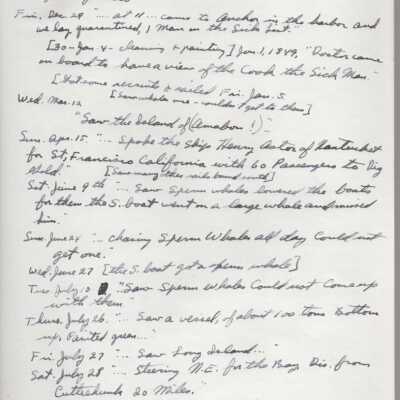 Fri. Dec 29 "... at 11 ... came to Anchor in the harbor and
we lay quarantined, 1 Man on the Sick List."
[30 - Jan 4 - cleaning + painting] Jan. 1, 1849, "Doctor came
on board to have a view of the Cook the Sick Man."
[Got some recruits + sailed Fri. Jan. 5
Wed. Mar. 12 [Saw whales once - couldn't get to them]
"Saw the Island of (Annabon!) -
Sun. Apr. 15 "... Spoke the Ship Henry Astor of Nantucket
for St. Francisco California with 60 Passengers to Dig
Gold." [Saw many other sails bound with]
Sat. June 9th "... Saw Sperm whales lowered the boats
for them the S. boat went on a large whale and missed
him."
Sun. June 24 "... chasing Sperm Whales all day Could not
get one.
Wed. June 27 [the S. boat got a sperm whale]
Tue. July "Saw Sperm Whales Could not Come up
with them"
Thurs. July 26. "... Saw a vessel, of about 100 tons Bottom
up, Painted green..."
Fri. July 27 "... Saw Long Island..."
Sat. July 28 "... Steering N.E. for the Bay Dis. from
Cuttehunk 20 Miles."